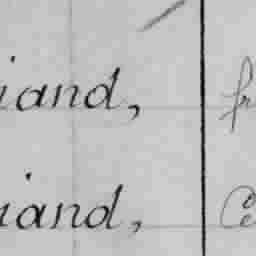 iand, fr
iand,